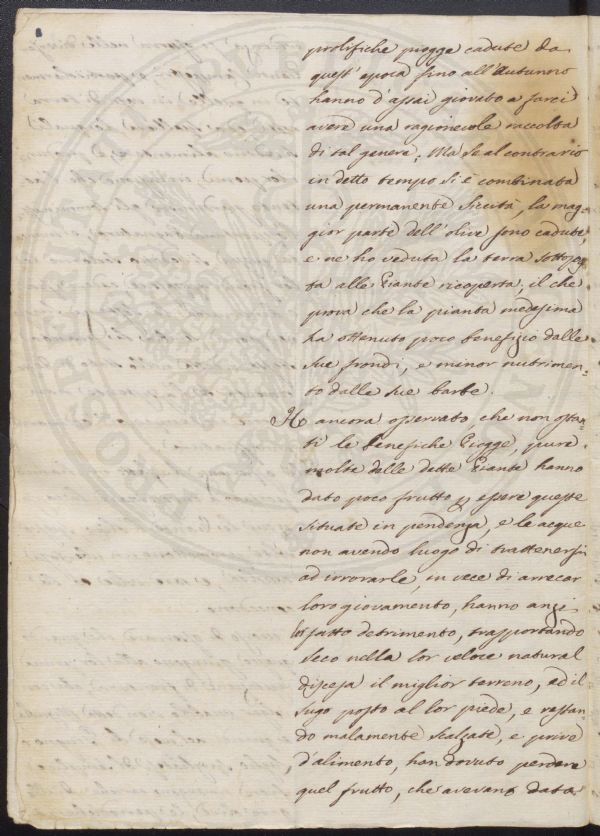 prolifiche piogge cadute da
quest'epoca fino all'Autunno
hanno d'assai giovato a farci
avere una ragionevole raccolta
di tal genere; Ma se al contrario
in detto tempo si è combinata
una permanente Siccità, la mag=
gior parte dell'olive sono cadute,
e ne ho veduta la terra sottopos=
ta alle Piante ricoperta; il che
prova che la pianta medesima
ha ottenuto poco benefizio dalle
sue frondi, e minor nutrimen=
to dalle sue barbe.
Ho ancora osservato, che non ostan=
ti le benefiche Piogge, pure
molte delle dette Piante hanno
dato poco frutto p essere queste
situate in pendenza, e le acque
non avendo luogo di trattenersi
ad irrorarle, in vece di arrecar
loro giovamento, hanno anzi
lor fatto detrimento, trasportando
seco nella lor veloce natural
discesa il miglior terreno, ed il
sugo posto al lor piede, e restan=
do malamente scalzate, e prive
d'alimento, han dovuto perdere
quel frutto, che avevano dato